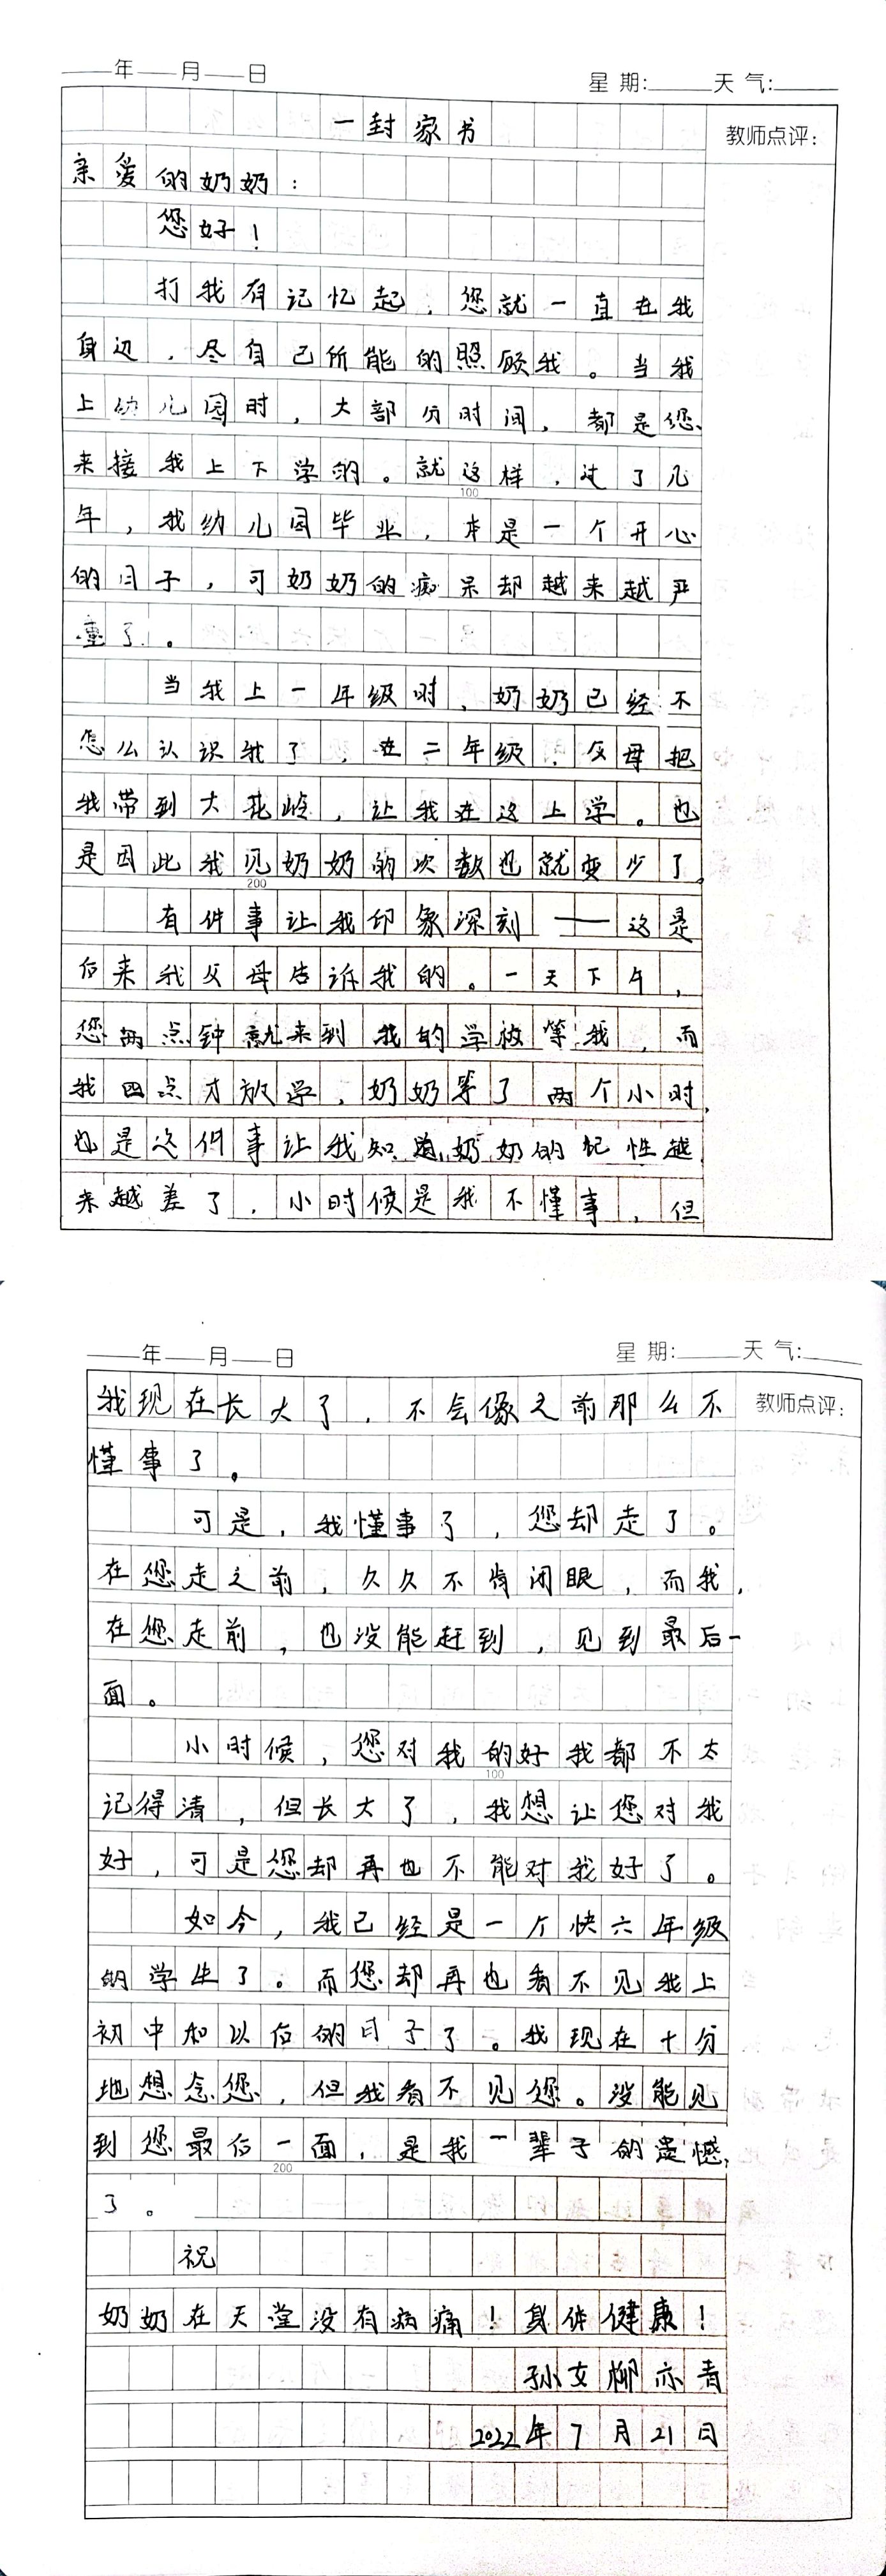 年 月 日 星期: 天气:
一封家书
教师点评:
亲爱的奶奶:
您好!
打我有记忆起,您就一直在我
身边,尽自己所能的照顾我。当我
上幼儿园时,大部分时间,都是您
来接我上下学的。就这样,过了几
100
年,我幼儿园毕业,本是一个开心
的日子,可奶奶的痴呆却越来越严
重了。
当我上一年级时,奶奶已经不
怎么认识我了,在二年级,父母把
我带到大花岭,让我在这上学。也
是因此我见奶奶的次数也就变少了。
200
有件事让我印象深刻——这是
后来我父母告诉我的。一天下午,
您两点钟就来到我的学校等我,而
我四点才放学,奶奶等了两个小时,
也是这件事让我知道,奶奶的记性越
来越差了,小时候是我不懂事,但
年 月 日 星期: 天气:
我现在长大了,不会像之前那么不
教师点评:
懂事了。
可是,我懂事了,您却走了。
在您走之前,久久不肯闭眼,而我,
在您走前,也没能赶到,见到最后一
面。
小时候,您对我的好我都不太
100
记得清,但长大了,我想让您对我
好,可是您却再也不能对我好了。
如今,我已经是一个快六年级
的学生了。而您却再也看不见我上
初中和以后的日子了。我现在十分
地想念您,但我看不见您。没能见
到您最后一面,是我一辈子的遗憾,
200
了。
祝
奶奶在天堂没有病痛!身体健康!
孙女柳亦青
2022年7月21日